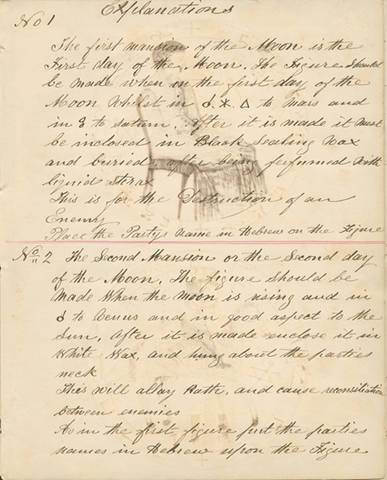 Explanations
No 1
The first mansion of the Moon is the
First day of the Moon. The Figure should
be made when in the first day of the
Moon Whilst in ☌ ⚹ △ to Mars and
in to saturn. After it is made it must
be inclosed in Black Sealing Wax
and buried after being perfumed with
liquid Storax
This is for the Destruction of an
Enemy
Place the Partys name in Hebrew on the Figure
No 2 The Second Mansion or the Second day
of the Moon. The figure should be
Made When the moon is rising and in
☌ to Venus and in good aspect to the
Sun. After it is made enclose it in
White Wax, and hung about the parties
neck
This will allay Hate, and cause reconsiliation
between enemies
As in the first figure put the parties
names in Hebrew upon the Figure